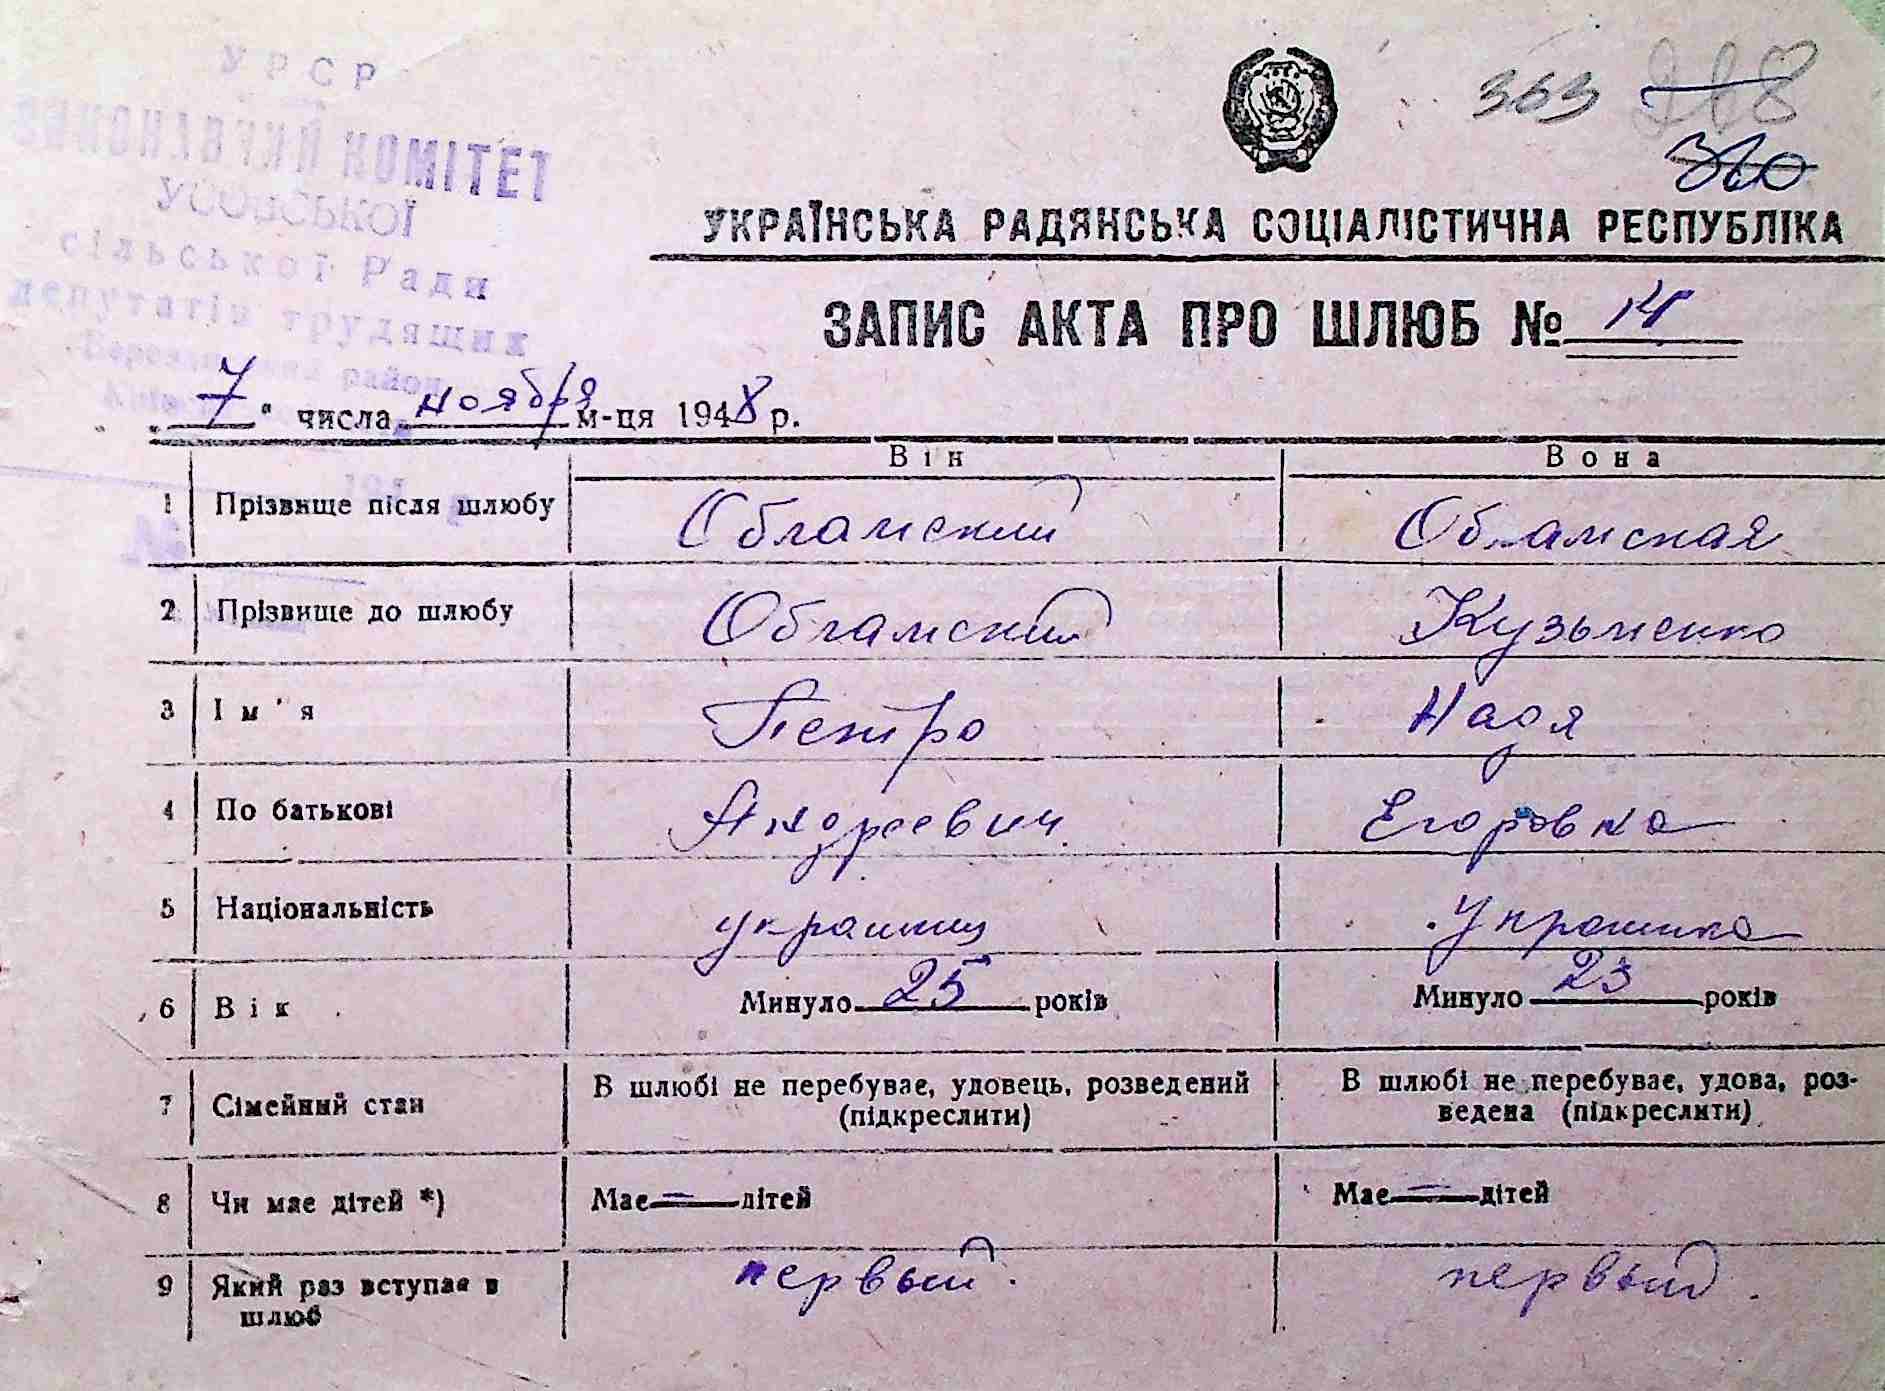 УРСР
ВИКОНАВЧИЙ КОМІТЕТ
УСОВСЬКОЇ
сільської Ради
депутатів трудящих
район
363 218
320
УКРАЇНСЬКА РАДЯНСЬКА СОЦІАЛІСТИЧНА РЕСПУБЛІКА
ЗАПИС АКТА ПРО ШЛЮБ № 14
„ 7 " числа ноября м-ця 1948 р.
Він Вона
1 Прізвище після шлюбу Обламский Обламская
2 Прізвище до шлюбу Обламский Кузьменко
3 Ім'я Петро Надя
4 По батькові Андреевич Егоровна
5 Національність украинец Украинка
6 Вік Минуло 25 років Минуло 23 років
7 Сімейний стан В шлюбі не перебуває, удовець, розведений (підкреслити) В шлюбі не перебуває, удова, роз-
ведена (підкреслити)
8 Чи має дітей *) Має — дітей Має — дітей
9 Який раз вступає в шлюб первый. первый.
№